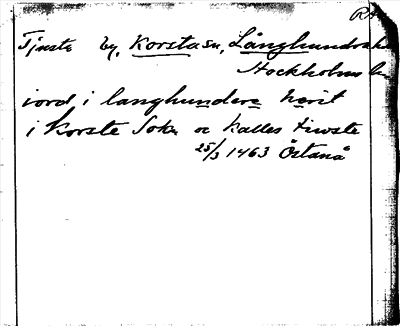 RA
Tjuste by, Korsta sn, Långhundra h
Stockholms l
iord i langhundere herit
i Korste Sokn oc kalles tiwste
25/3 1463 Östanå